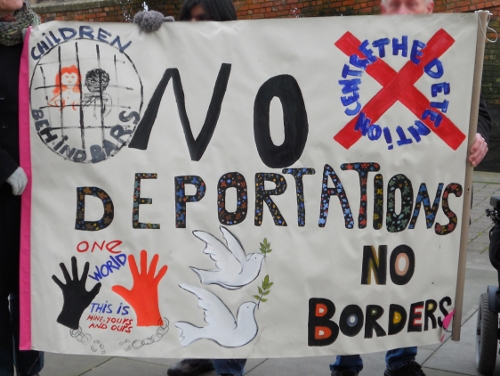 CHILDREN
BEHIND BARS
NO
DEPORTATIONS
THE DETENTION
CENTRE
ONE
WORLD
THIS IS
MINE-YOURS
AND OURS
NO
BORDERS